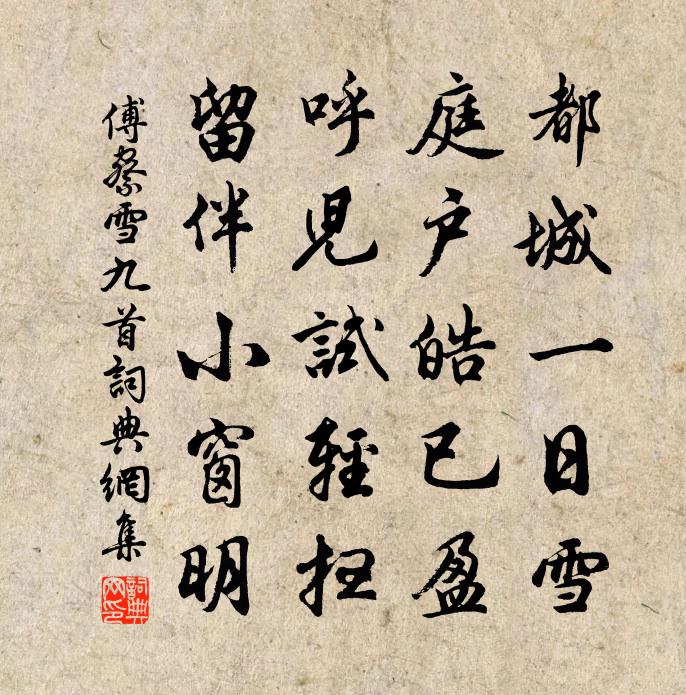 都城一日雪
庭户皓已盈
呼兒試輕扫
留伴小窗明
傅察雪九首詞典網集
詞典网印